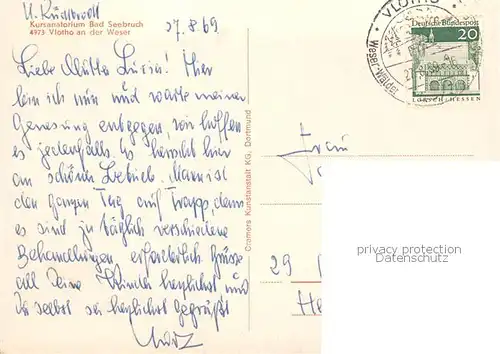 27.8.69
Kursanatorium Bad Seebruch
4973 Vlotho an der Weser
Liebe Hier
bin ich nun und warte meiner
Genesung entgegen, wir hoffen
es jedenfalls. Es herrscht hier
ein schöner Betrieb. Man ist
den ganzen Tag auf Trapp, denn
es sind ja täglich verschiedene
Behandlungen erforderlich. Grüsse
all Deine Kinder herzlichst und
Du selbst sei herzlichst gegrüßt
Cramers Kunstanstalt KG, Dortmund
VLOTHO
Deutsche Bundespost
20
LORSCH/HESSEN
Frau
29
privacy protection
Datenschutz